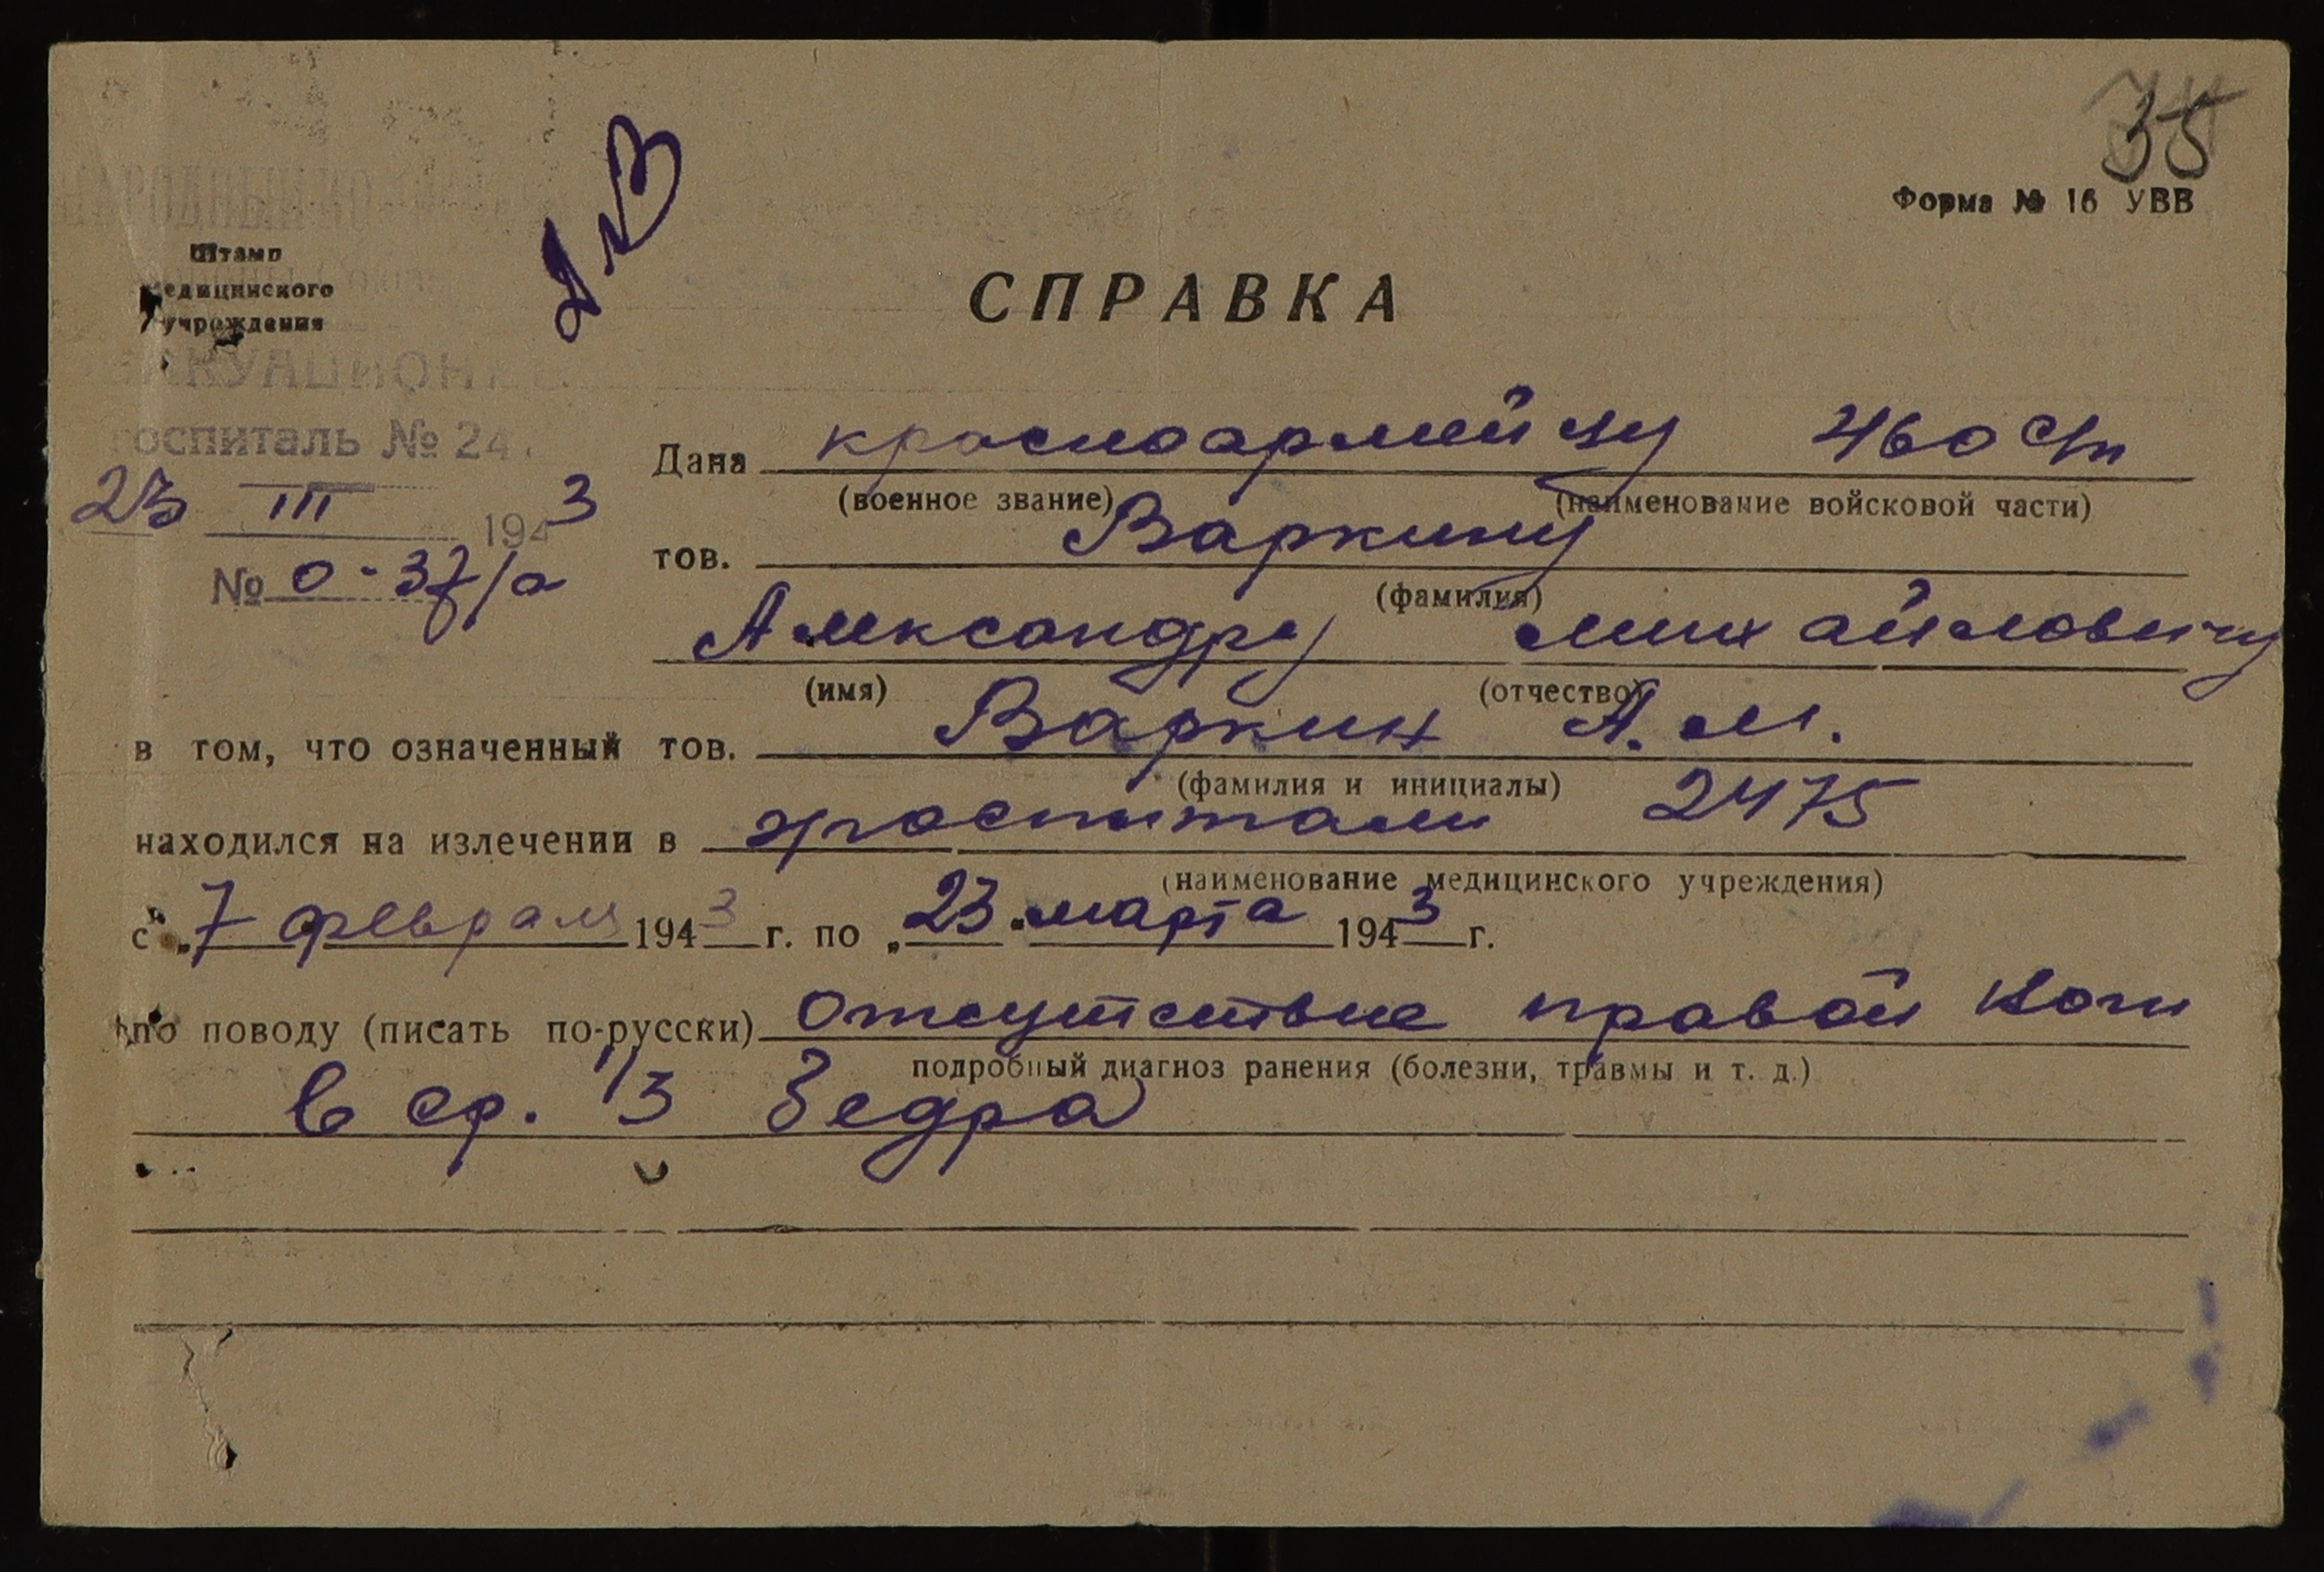 35
Форма № 16 УВВ
Штамп
медицинского
учреждения
СПРАВКА
госпиталь № 24
23 III 1943
№ 0-37/а
Дана красноармейцу 460 с/п
(военное звание) (наименование войсковой части)
тов. Варкину
(фамилия)
Александру Михайловичу
(имя) (отчество)
в том, что означенный тов. Варкин А. М.
(фамилия и инициалы)
находился на излечении в эгоспитали 2475
(наименование медицинского учреждения)
с „7" февраля 1943 г. по „23" марта 1943 г.
по поводу (писать по-русски) Отсутствие правой ноги
подробный диагноз ранения (болезни, травмы и т. д.)
в ср. 1/3 бедра